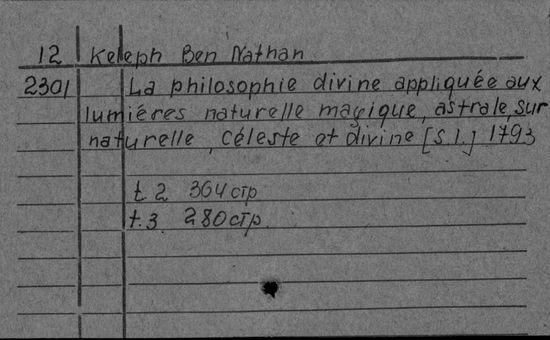 12 Keleph Ben Nathan
2301 La philosophie divine appliquée aux
lumiéres naturelle magique, astrale, sur
naturelle, céleste et divine [S.l.] 1793
t. 2 304 стр
t. 3. 280 стр.